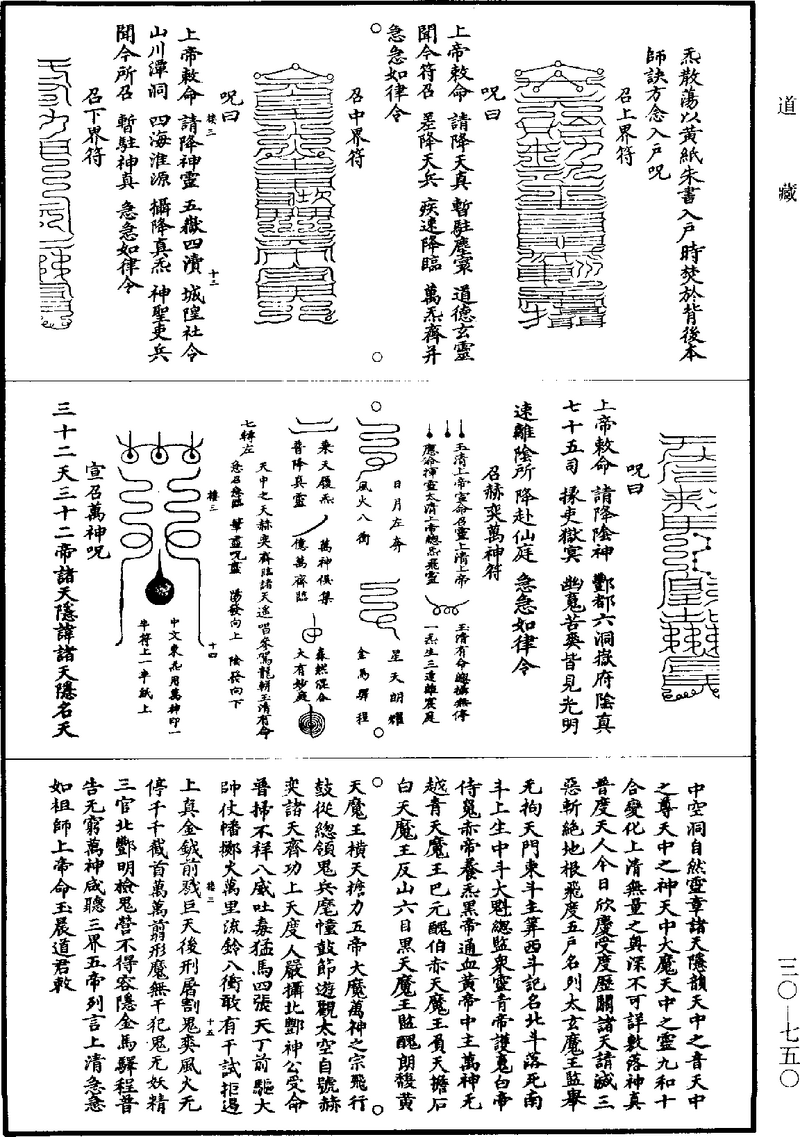 道藏
三〇—七五〇
炁散蕩以黃紙朱書入戶時焚於背後本
師訣方念入戶呪
召上界符
呪曰
上帝敕命　請降天真　暫駐塵寰　道德玄靈
聞今符召　差降天兵　疾速降臨　萬炁齊并
急急如律令
召中界符
呪曰
上帝敕命　請降神靈　五嶽四瀆　城隍社令
山川潭洞　四海淮源　攝降真炁　神聖吏兵
聞今所召　暫駐神真　急急如律令
召下界符
呪曰
上帝敕命　請降陰神　酆都六洞　嶽府陰真
七十五司　掾吏獄冥　幽冤苦爽　皆見光明
速離陰所　降赴仙庭　急急如律令
召赫奕萬神符
玉清上帝宣命召靈上清上帝
應命揮靈太清上帝總炁飛靈
玉清有命總攝無停
一炁生三速離震庭
日月左奔
風火八衝
星天朗耀
金馬驛程
乘天履炁
普降真靈
萬神俱集
億萬齊臨
森然混合
大有妙庭
天中之天赫奕齊臨諸天遙唱參駕龍朝玉清有命
急召急臨　筆盡呪靈　陽發向上　陰發向下
七轉左
中文東炁用萬神印一
半符上一半紙上
宣召萬神呪
三十二天三十二帝諸天隱諱諸天隱名天
中空洞自然靈章諸天隱韻天中之音天中
之尊天中之神天中大魔天中之靈九和十
合變化上清無量之奧深不可詳敷落神真
普度天人今日欣慶受度歷關諸天請滅三
惡斬絕地根飛度五戶名列太玄魔王監舉
无拘天門東斗主算西斗記名北斗落死南
斗上生中斗大魁總監衆靈青帝護魂白帝
侍魄赤帝養炁黑帝通血黃帝中主萬神无
越青天魔王巴元醜伯赤天魔王負天擔石
白天魔王反山六目黑天魔王監醜朗馥黃
天魔王橫天擔力五帝大魔萬神之宗飛行
鼓從總領鬼兵麾幢鼓節遊觀太空自號赫
奕諸天齊功上天度人嚴攝北酆神公受命
普掃不祥八威吐毒猛馬四張天丁前驅大
帥仗幡擲火萬里流鈴八衝敢有干試拒遏
上真金鉞前戮巨天後刑屠割鬼爽風火无
停千千截首萬萬翦形魔無干犯鬼无妖精
三官北酆明檢鬼營不得容隱金馬驛程普
告无窮萬神咸聽三界五帝列言上清急急
如祖師上帝命玉晨道君敕